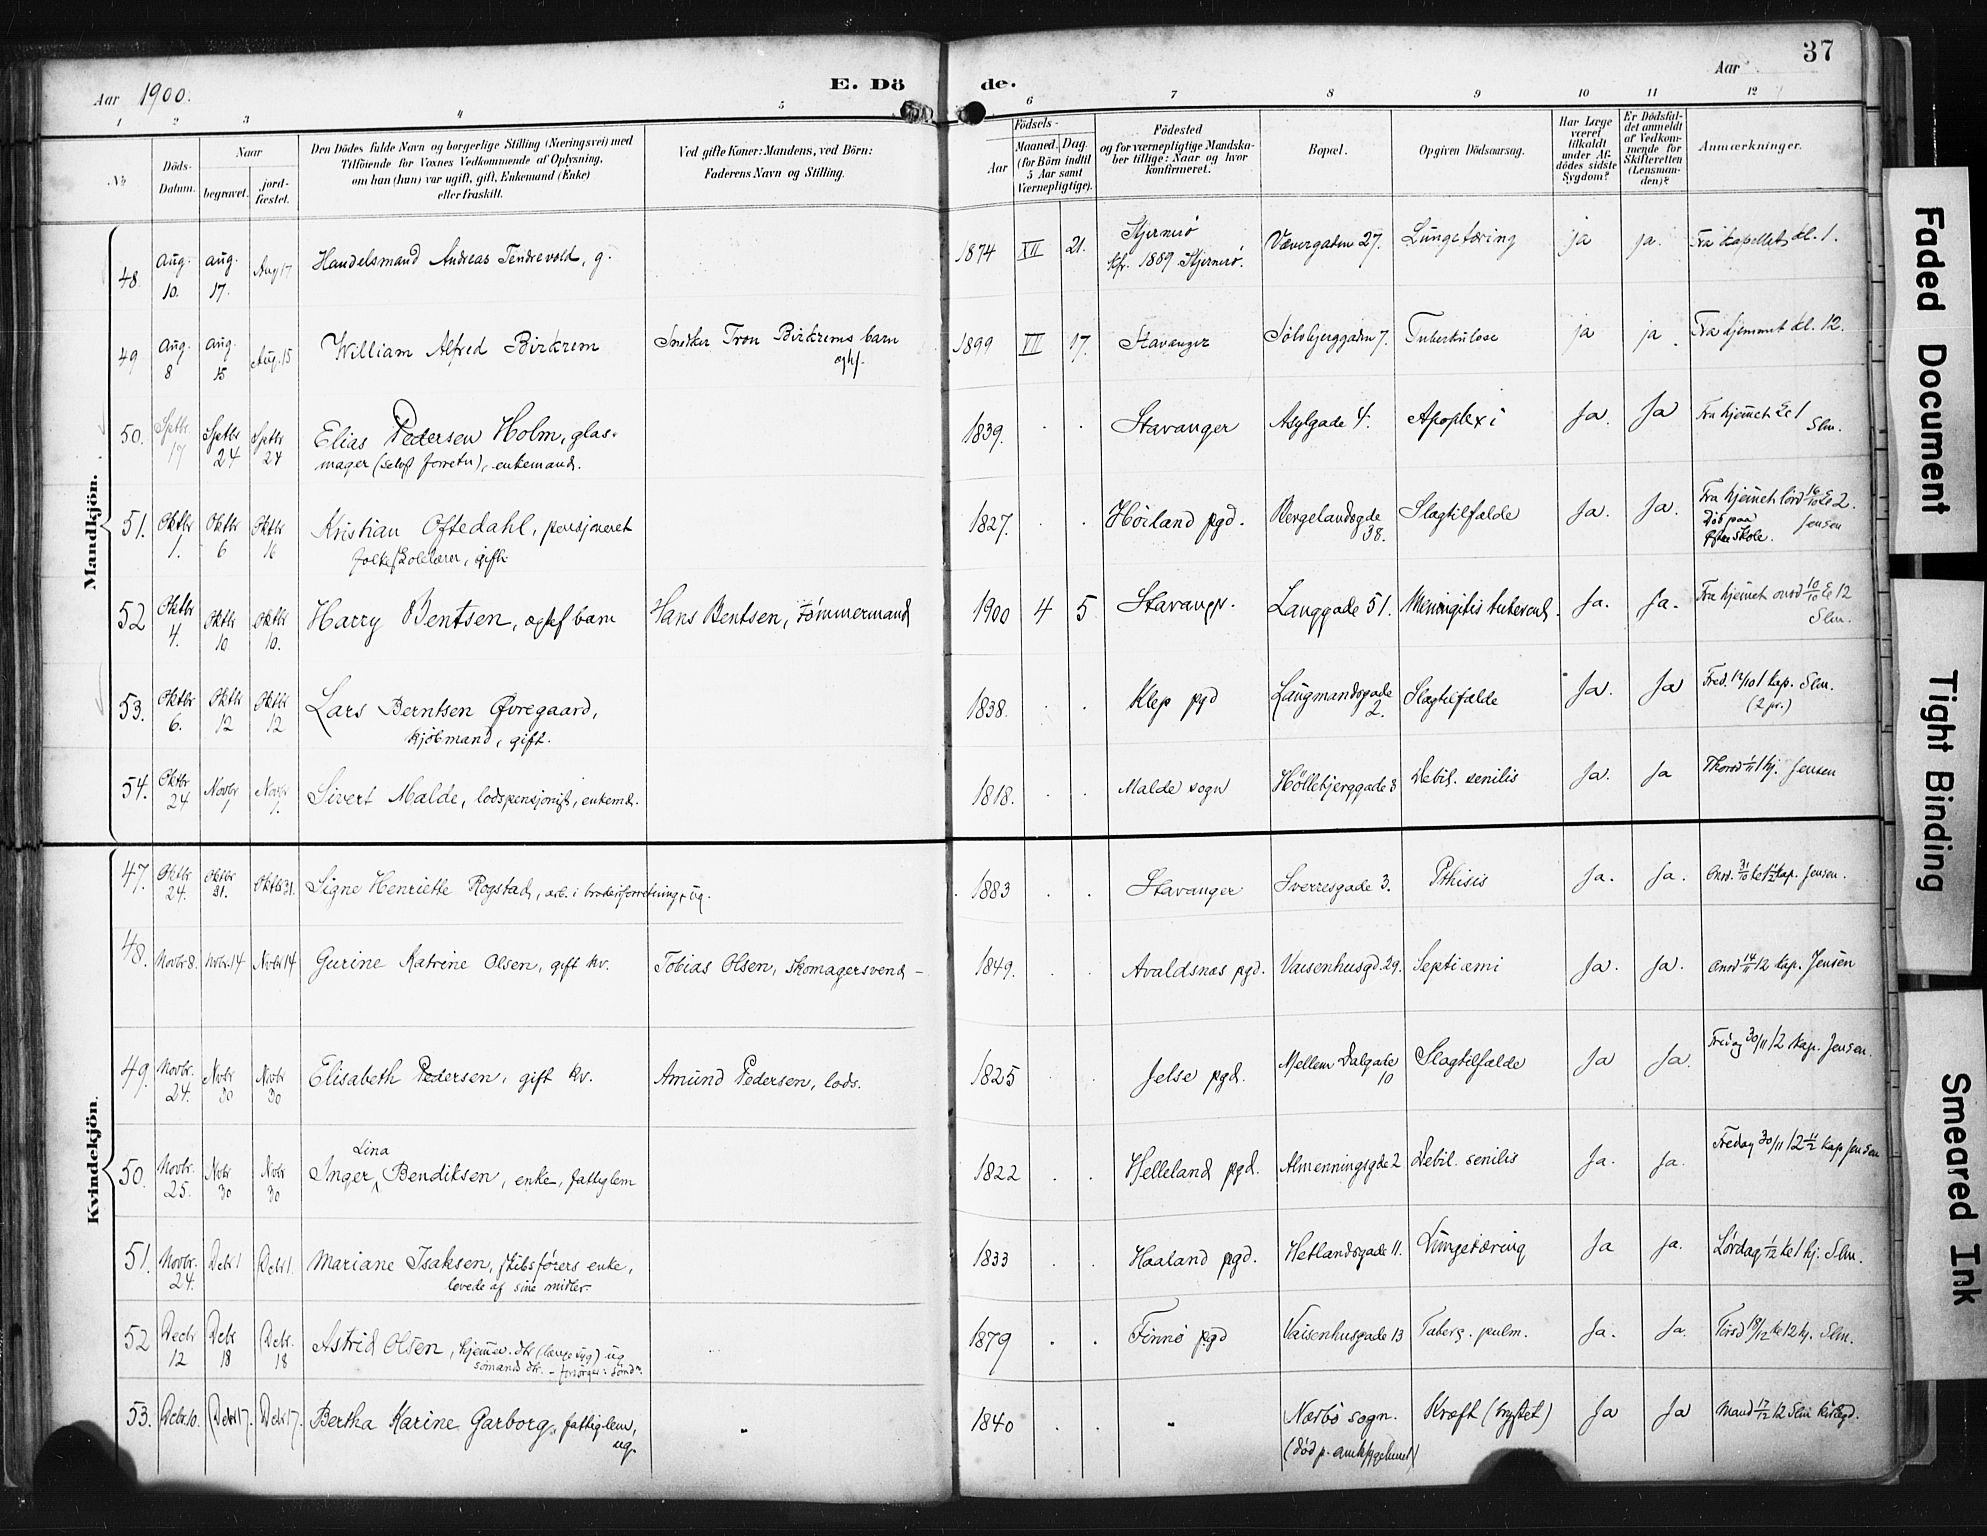 37
Aar 1900.
E. Dö de.
Aar
1 2 3 4 5 6 7 8 9 10 11 12
No.
Döds-Datum.
Naar
begravet.
jord-fæstet.
Den Dödes fulde Navn og borgerlige Stilling (Næringsvei) med
Tilföiende for Voxnes Vedkommende af Oplysning,
om han (hun) var ugift, gift, Enkemand (Enke)
eller fraskilt.
Ved gifte Koner: Mandens, ved Börn:
Faderens Navn og Stilling.
Födsels-
Aar
Maaned. Dag.
(for Börn indtil
5 Aar samt
Værnepligtige).
Födested
og for værnepligtige Mandska-
ber tillige: Naar og hvor
konfirmeret.
Bopæl.
Opgiven Dödsaarsag.
Har Læge
været
tilkaldt
under Af-
dödes sidste
Sygdom?
Er Dödsfal-
det anmeldt
af Vedkom-
mende for
Skifteretten
(Lensman-
den)?
Anmærkninger.
Mandkjön.
48. Aug. 10. Aug. 17. Aug 17 Handelsmand Andreas Tendrevold, g. 1874 VII 21. Hjernerö kfr. 1889 Hjernerö. Vævergaden 27. Lungetæring ja ja. Fra kapellet kl. 1.
49 Aug. 8 Aug. 15 Aug. 15 William Alfred Birkrem Snedker Tron Birkrems barn 1899 VII 17. Stavanger Sölvbjerggaden 7. Tuberkulose ja ja. Fra hjemmet kl. 12.
50. Septbr 17 Septbr 24 Septbr 24 Elias Pedersen Holm, glas-
mager (selvst forretn), enkemand. 1839. Stavanger Asylgade 4. Apoplexi Ja. Ja Fra hjemmet 1 Slm.
51. Oktbr 1. Oktbr 6 Oktbr 16 Kristian Oftedahl, pensjoneret
folkeskolelærer, gift 1827. Höiland pgd. Bergelandsgde 38. Slagtilfælde Ja. Ja. Fra hjemmet 2. Jensen
52 Oktbr 4. Oktbr 10 Oktbr 10. Harry Bentsen, barn Hans Bentsen, Tömmermand 1900 4 5 Stavangr. Langgade 51. Meningitis tubercul. Ja. Ja. Fra hjemmet onsd 10/10 12 Slm.
53. Oktbr 6. Oktbr 12 Oktbr 12 Lars Berntsen Øvregaard,
kjöbmand, gift. 1838. Klep pgd Laugmandsgade 2. Slagtilfælde Ja. Ja Fred. 12/10 1 kap. Slm. (2 pr.)
54. Oktbr 24 Novbr 1 Novbr 1. Sivert Malde, lodspensjonist, enkemd. 1818. Malde sogn Höllebjerggade 8 Debil. senilis Ja. Ja Thorsd 1/11 1 hj. Jensen
Kvindekjön.
47. Oktbr 24. Oktbr 31. Oktbr 31. Signe Henriette Rogstad, arb. i broderiforretning, ug. 1883 Stavanger Sverresgade 3. Phthisis Ja. Ja. Onsd. 31/10 kap. Jensen.
48. Novbr 8. Novbr. 14 Novbr 14 Gurine Katrine Olsen, gift kv. Tobias Olsen, skomagersvend 1849. Avaldsnæs pgd. Vaisenhusgd. 29. Septicæmi Ja. Ja. Onsd 14/11 12 kap. Jensen
49. Novbr. 24. Novbr 30 Novbr 30 Elisabeth Pedersen, gift kv. Amund Pedersen, lods. 1825 Jelse pgd. Mellem Dalgade 10 Slagtilfælde Ja Ja. Fredag 30/11 12 kap. Jensen.
50. Novbr. 25. Novbr 30 Novbr 30 Inger Lina Bendiksen, enke, fattiglem 1822 Helleland pgd. Almenningsgde 2 Debil. senilis Ja. Ja. Fredag 30/11 12 1/2 kap Jensen
51. Novbr. 24. Debr 1 Debr 1. Mariane Isaksen, skibsförers enke,
levede af sine midler. 1833 Haaland pgd. Hetlandsgade 11. Lungetæring Ja Ja. Lördag 1/12 1 hj. Slm.
52 Decbr 12 Debr 18 Debr. 18 Astrid Olsen, hjemmev. dtr (længe syg) ug
sömands dtr. 1879 Finnö pgd Vaisenhusgade 13 Tuberc. pulm. Ja. Ja. Tirsd 18/12 12 hj. Slm.
53. Debr 10. Debr 17. Debr 17. Bertha Karine Garborg, fattiglem,
ug. 1840 " Nærbö sogn.
(död p. amtssygehuset) Kræft (brystet) Ja Ja Mand 17/12 12 Slm
Faded Document
Tight Binding
Smeared Ink